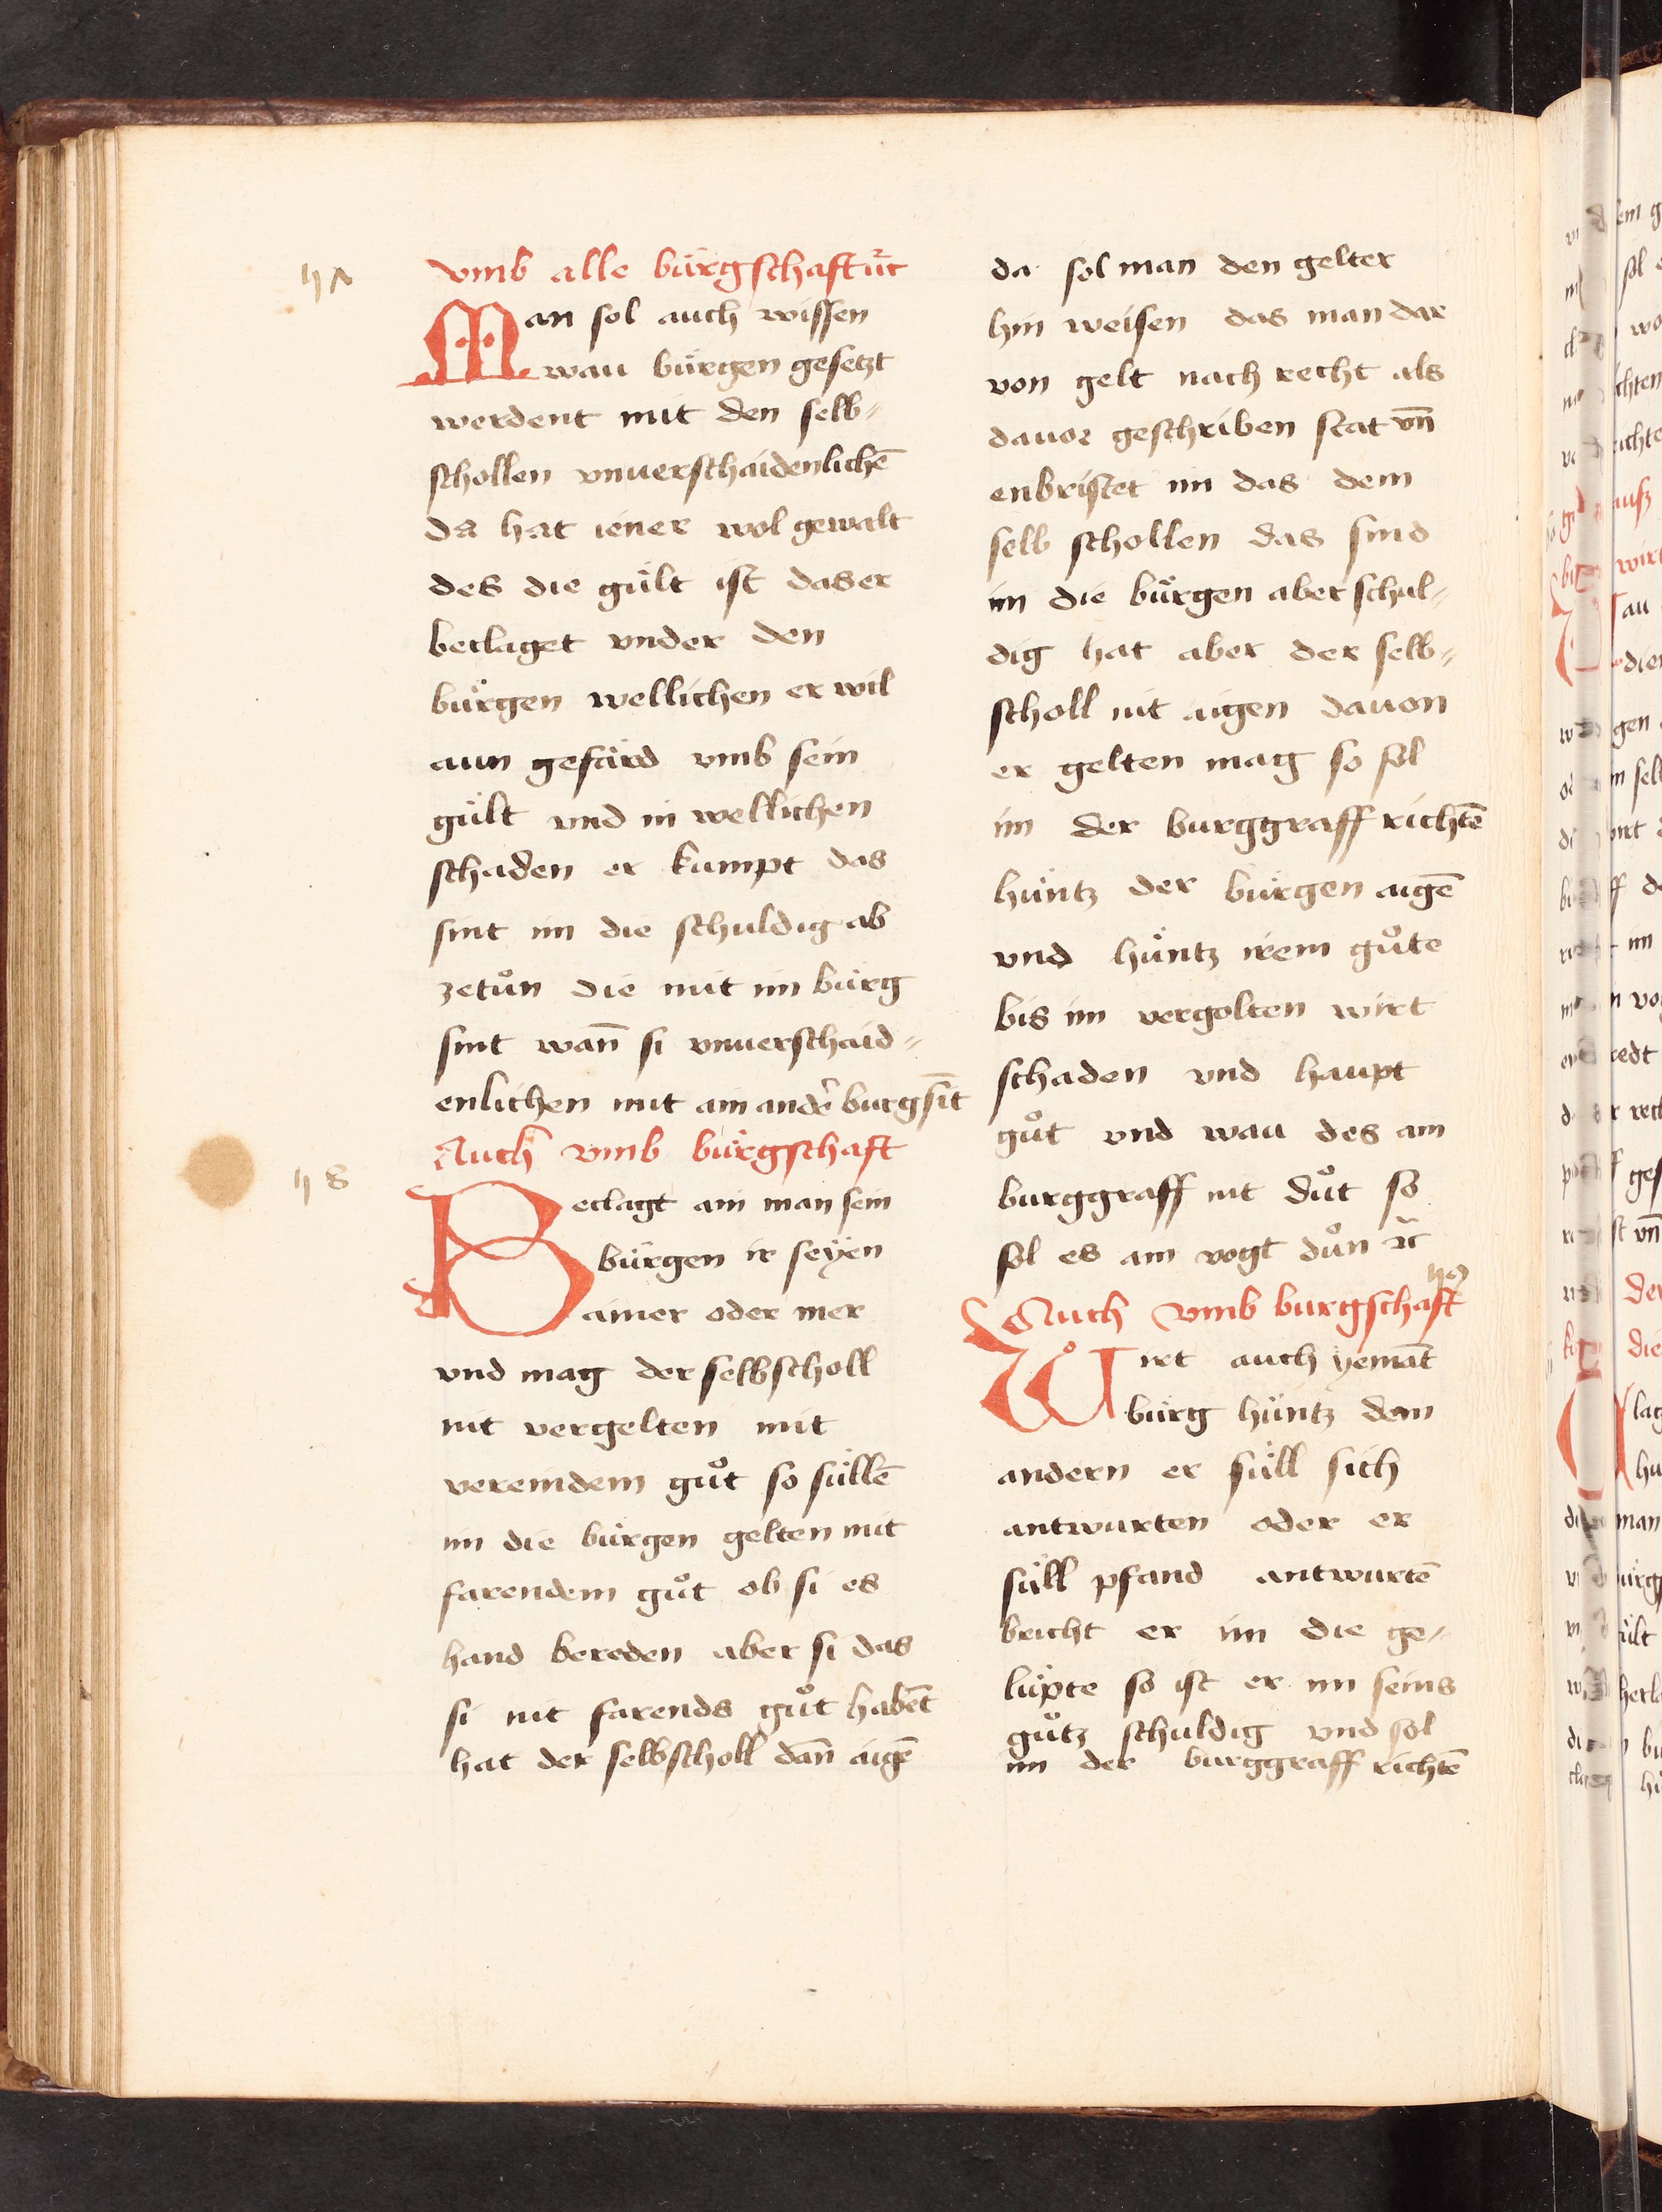 h ʌ
vmb alle bürgschaft ⁊c̄
Man sol auch wissen
wau bürgen gesetzt
werdent mit den selb=
schollen vnuerschaidenlichē
da hat iener wol gewalt
des die gült ist das er
beclaget vnder den
bürgen wellichen er wil
aun gefärd vmb sein
gült vnd in wellichen
schaden er kumpt das
sint im die schuldig ab
zetůn die mit im bürg
sint wan̄ si vnuerschaid=
enlichen mit ain andˀ burg sīt
Auch vmb bürgschaft
h 8
Beclagt ain man sein
bürgen ir seyen
ainer oder mer
vnd mag der selbscholl
nit vergelten mit
vereindem gůt so süllē
im die bürgen gelten mit
farendem gůt ob si es
hand bereden aber si das
si nit farends gůt habēt
hat der selbscholl dan̄ aigē
da sol man den gelter
hin weisen das man dar
von gelt nach recht als
dauor geschriben stat vn̄
enbristet im das dem
selb schollen das sind
im die bürgen aber schul=
dig hat aber der selb=
scholl nit aigen dauon
er gelten mag so sol
im der burggraff richtē
hüntz der bürgen aigē
vnd hüntz irem gůte
bis im vergolten wirt
schaden vnd haupt
gůt vnd wau des ain
burggraff nit důt so
sol es ain vogt důn ⁊c̄
h9
Auch vmb burgschaft
Wirt auch yemāt
bürg hüntz dem
andern er süll sich
antwurten oder er
süll pfand antwurtē
bricht er im die ge=
lüpte so ist er im seins
gůtz schuldig vnd sol
im der burggraff richtē